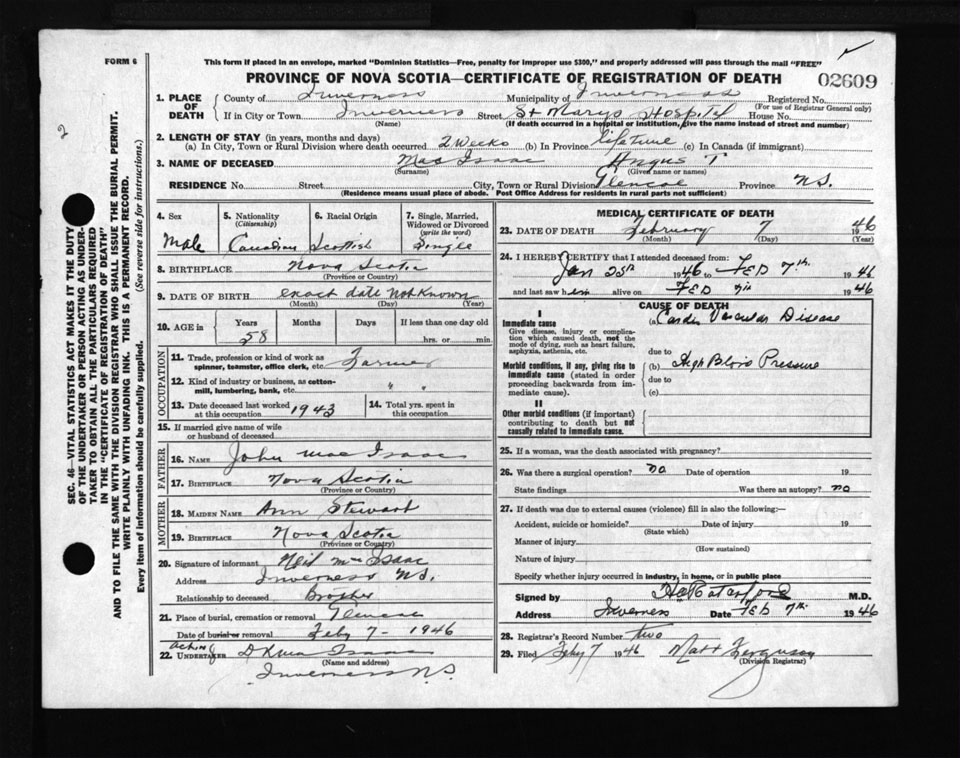 FORM 6
This form if placed in an envelope, marked "Dominion Statistics—Free, penalty for improper use $300," and properly addressed will pass through the mail "FREE"
PROVINCE OF NOVA SCOTIA—CERTIFICATE OF REGISTRATION OF DEATH
02609
2
SEC. 46—VITAL STATISTICS ACT MAKES IT THE DUTY
OF THE UNDERTAKER OR PERSON ACTING AS UNDER-
TAKER TO OBTAIN ALL THE PARTICULARS REQUIRED
IN THE "CERTIFICATE OF REGISTRATION OF DEATH"
AND TO FILE THE SAME WITH THE DIVISION REGISTRAR WHO SHALL ISSUE THE BURIAL PERMIT.
WRITE PLAINLY WITH UNFADING INK. THIS IS A PERMANENT RECORD.
Every item of information should be carefully supplied. (See reverse side for instructions.)
1. PLACE OF DEATH County of Inverness Municipality of Inverness Registered No.
(For use of Registrar General only)
If in City or Town Inverness Street St Marys Hospital House No.
(Name) (If death occurred in a hospital or institution, give the name instead of street and number)
2. LENGTH OF STAY (in years, months and days)
(a) In City, Town or Rural Division where death occurred 2 Weeks (b) In Province lifetime (c) In Canada (if immigrant)
3. NAME OF DECEASED Mac Isaac Angus T
(Surname) (Given name or names)
RESIDENCE No. Street City, Town or Rural Division Glencoe Province N.S.
(Residence means usual place of abode. Post Office Address for residents in rural parts not sufficient)
4. Sex Male
5. Nationality (Citizenship) Canadian
6. Racial Origin Scottish
7. Single, Married, Widowed or Divorced (write the word) Single
8. BIRTHPLACE Nova Scotia
(Province or Country)
9. DATE OF BIRTH exact date Not Known
(Month) (Day) (Year)
10. AGE in Years Months Days If less than one day
58 hrs. or min.
OCCUPATION
11. Trade, profession or kind of work as spinner, teamster, office clerk, etc. Farmer
12. Kind of industry or business, as cotton-mill, lumbering, bank, etc. " "
13. Date deceased last worked at this occupation 1943
14. Total yrs. spent in this occupation
15. If married give name of wife or husband of deceased
FATHER
16. NAME John Mac Isaac
17. BIRTHPLACE Nova Scotia
(Province or Country)
MOTHER
18. MAIDEN NAME Ann Stewart
19. BIRTHPLACE Nova Scotia
(Province or Country)
20. Signature of informant Neil Mac Isaac
Address Inverness N.S.
Relationship to deceased Brother
21. Place of burial, cremation or removal Glencoe
Date of burial or removal Feby 7 - 1946
Acting
22. UNDERTAKER Isaac
(Name and address)
Inverness N.S.
MEDICAL CERTIFICATE OF DEATH
23. DATE OF DEATH February 7 1946
(Month) (Day)
24. I HEREBY CERTIFY that I attended deceased from:
Jan 1946 to FEB 7th. 1946
and last saw him alive on FEB 7th 1946
CAUSE OF DEATH
I
Immediate cause (a) Cardio Vascular Disease
Give disease, injury or complication which caused death, not the mode of dying, such as heart failure, asphyxia, asthenia, etc.
due to
Morbid conditions, if any, giving rise to immediate cause (stated in order proceeding backwards from immediate cause). (b) High Blood Pressure
due to
(c)
II
Other morbid conditions (if important) contributing to death but not causally related to immediate cause.
25. If a woman, was the death associated with pregnancy?
26. Was there a surgical operation? no Date of operation 19
State findings Was there an autopsy? no
27. If death was due to external causes (violence) fill in also the following:—
Accident, suicide or homicide? Date of injury 19
(State which)
Manner of injury
(How sustained)
Nature of injury
Specify whether injury occurred in industry, in home, or in public place
Signed by M.D.
Address Inverness Date FEB 7th. 1946
28. Registrar's Record Number two
29. Filed Feby 7 1946 Matt Ferguson
(Division Registrar)